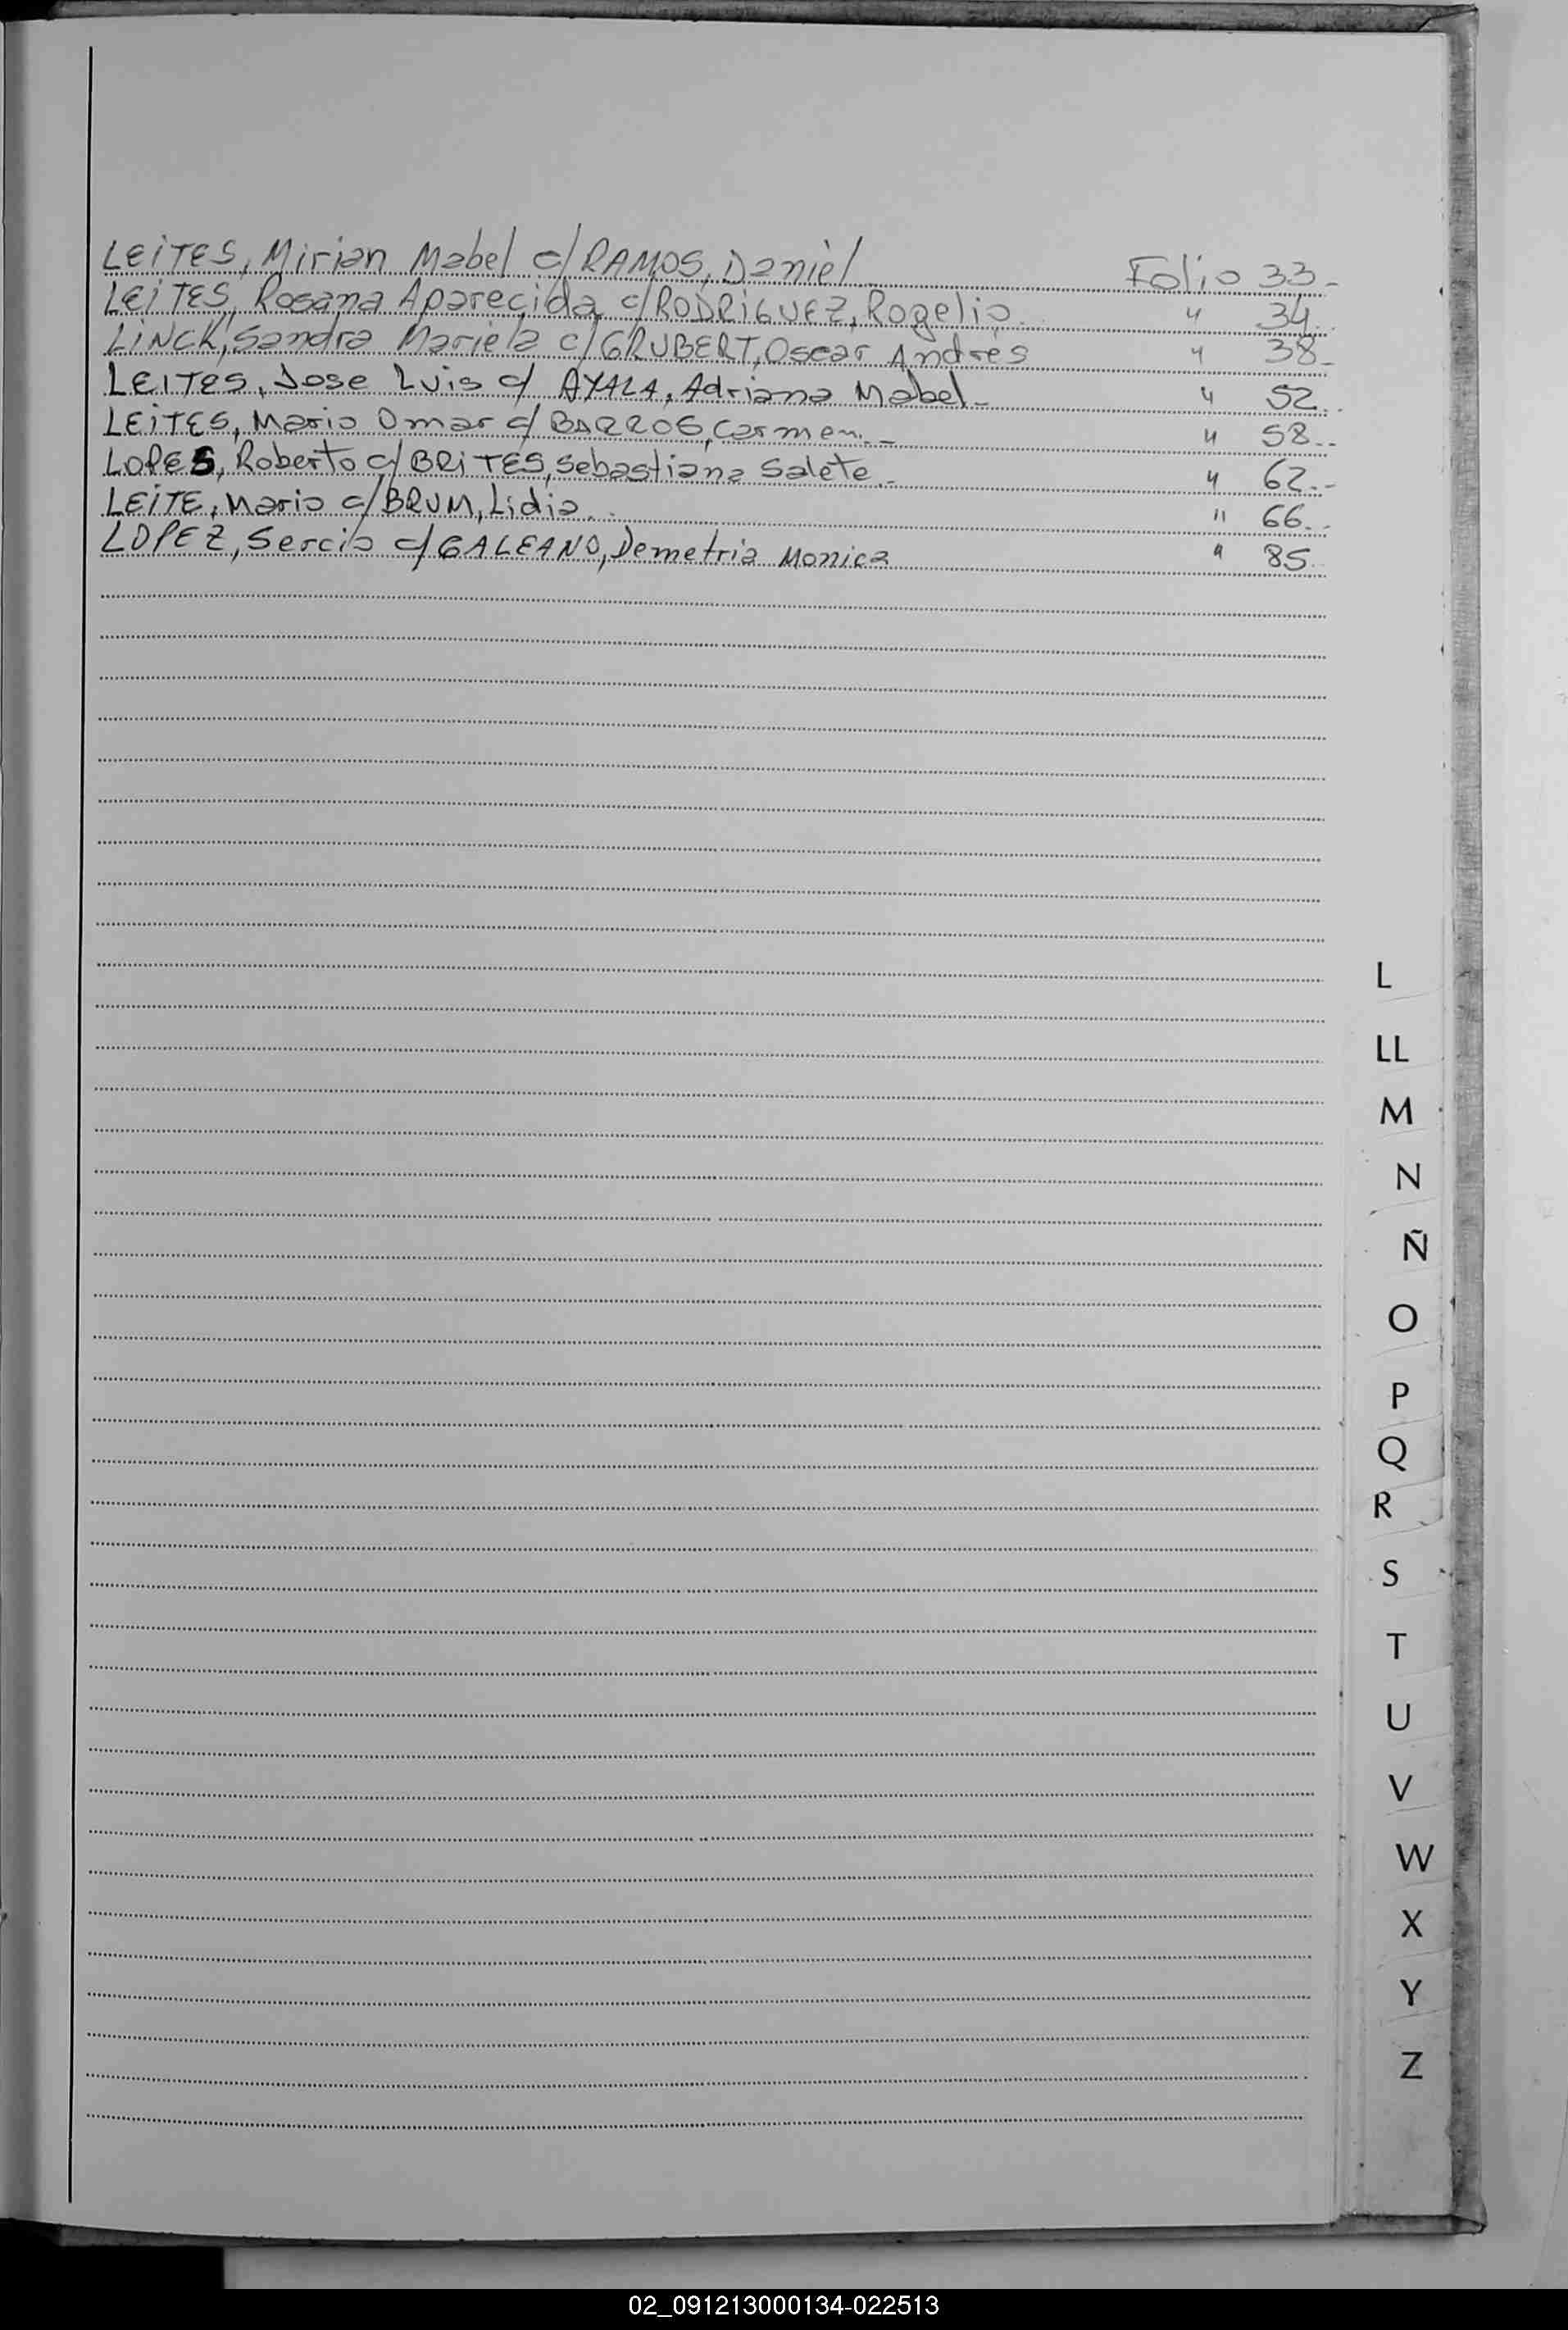 LEITES, Mirian Mabel c/ RAMOS, Daniel Folio 33-
LEITES, Rosana Aparecida c/ RODRIGUEZ, Rogelio. " 34.
LINCK, Sandra Mariela c/ GRUBERT, Oscar Andrés " 38-
LEITES, Jose Luis c/ AYALA, Adriana Mabel- " 52.
LEITES, Mario Omar c/ BARROS, Carmen.- " 58.-
LOPES, Roberto c/ BRITES, Sebastiana Salete.- " 62.-
LEITE, Mario c/ BRUM, Lidia. " 66.
LOPEZ, Sercio c/ GALEANO, Demetria Monica " 85
L
LL
M
N
Ñ
O
P
Q
R
S
T
U
V
W
X
Y
Z
02_091213000134-022513